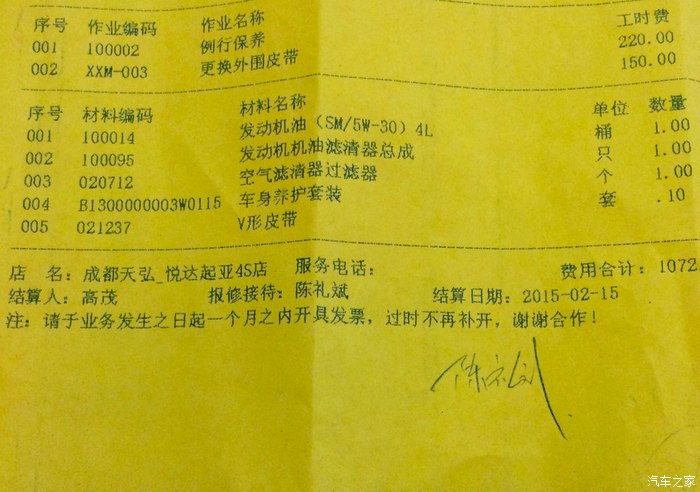 序号 作业编码 作业名称 工时费
001 100002 例行保养 220.00
002 XXM-003 更换外围皮带 150.00
序号 材料编码 材料名称 单位 数量
001 100014 发动机油（SM/5W-30）4L 桶 1.00
002 100095 发动机机油滤清器总成 只 1.00
003 020712 空气滤清器过滤器 个 1.00
004 B1300000003W0115 车身养护套装 套 .10
005 021237 V形皮带
店 名：成都天弘_悦达起亚4S店 服务电话： 费用合计：1072
结算人：高茂 报修接待：陈礼斌 结算日期：2015-02-15
注：请于业务发生之日起一个月之内开具发票，过时不再补开，谢谢合作！
汽车之家